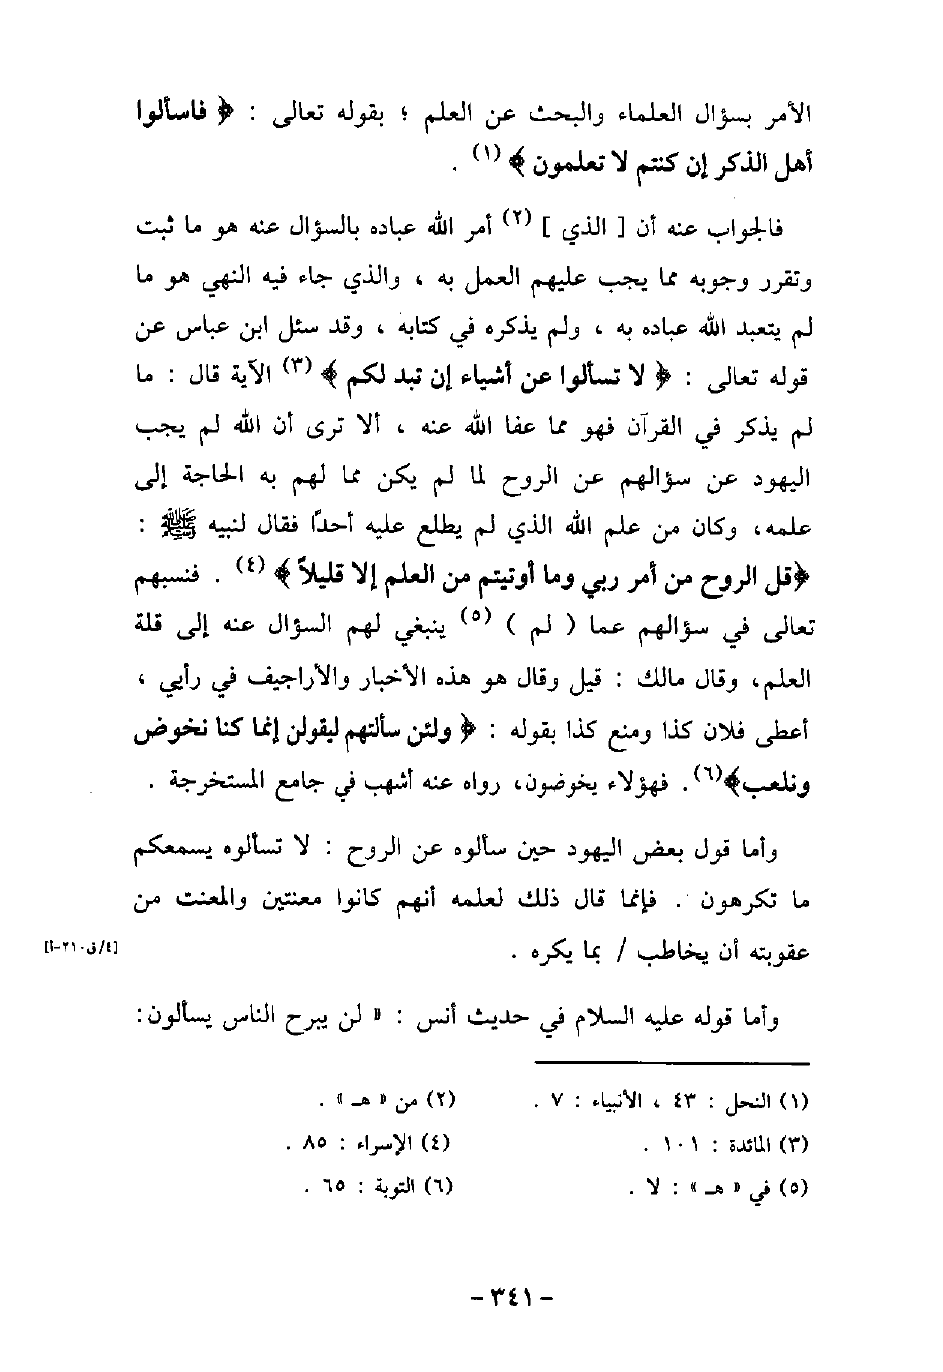 الأمر بسؤال العلماء والبحث عن العلم ؛ بقوله تعالى : ﴿ فاسألوا
أهل الذكر إن كنتم لا تعلمون ﴾ (١) .
فالجواب عنه أن [ الذي ] (٢) أمر الله عباده بالسؤال عنه هو ما ثبت
وتقرر وجوبه مما يجب عليهم العمل به ، والذي جاء فيه النهي هو ما
لم يتعبد الله عباده به ، ولم يذكره في كتابه ، وقد سئل ابن عباس عن
قوله تعالى : ﴿ لا تسألوا عن أشياء إن تبد لكم ﴾ (٣) الآية قال : ما
لم يذكر في القرآن فهو مما عفا الله عنه ، ألا ترى أن الله لم يجب
اليهود عن سؤالهم عن الروح لما لم يكن مما لهم به الحاجة إلى
علمه، وكان من علم الله الذي لم يطلع عليه أحدًا فقال لنبيه ﷺ :
﴿قل الروح من أمر ربي وما أوتيتم من العلم إلا قليلاً ﴾ (٤) . فنسبهم
تعالى في سؤالهم عما ( لم ) (٥) ينبغي لهم السؤال عنه إلى قلة
العلم، وقال مالك : قيل وقال هو هذه الأخبار والأراجيف في رأيي ،
أعطى فلان كذا ومنع كذا بقوله : ﴿ ولئن سألتهم ليقولن إنما كنا نخوض
ونلعب﴾(٦). فهؤلاء يخوضون، رواه عنه أشهب في جامع المستخرجة .
وأما قول بعض اليهود حين سألوه عن الروح : لا تسألوه يسمعكم
ما تكرهون . فإنما قال ذلك لعلمه أنهم كانوا معنتين والمعنت من
عقوبته أن يخاطب / بما يكره . [٤/ق٢١٠-أ]
وأما قوله عليه السلام في حديث أنس : « لن يبرح الناس يسألون:
(١) النحل : ٤٣ ، الأنبياء : ٧ . (٢) من « هـ » .
(٣) المائدة : ١٠١ . (٤) الإسراء : ٨٥ .
(٥) في « هـ » : لا . (٦) التوبة : ٦٥ .
- ٣٤١ -